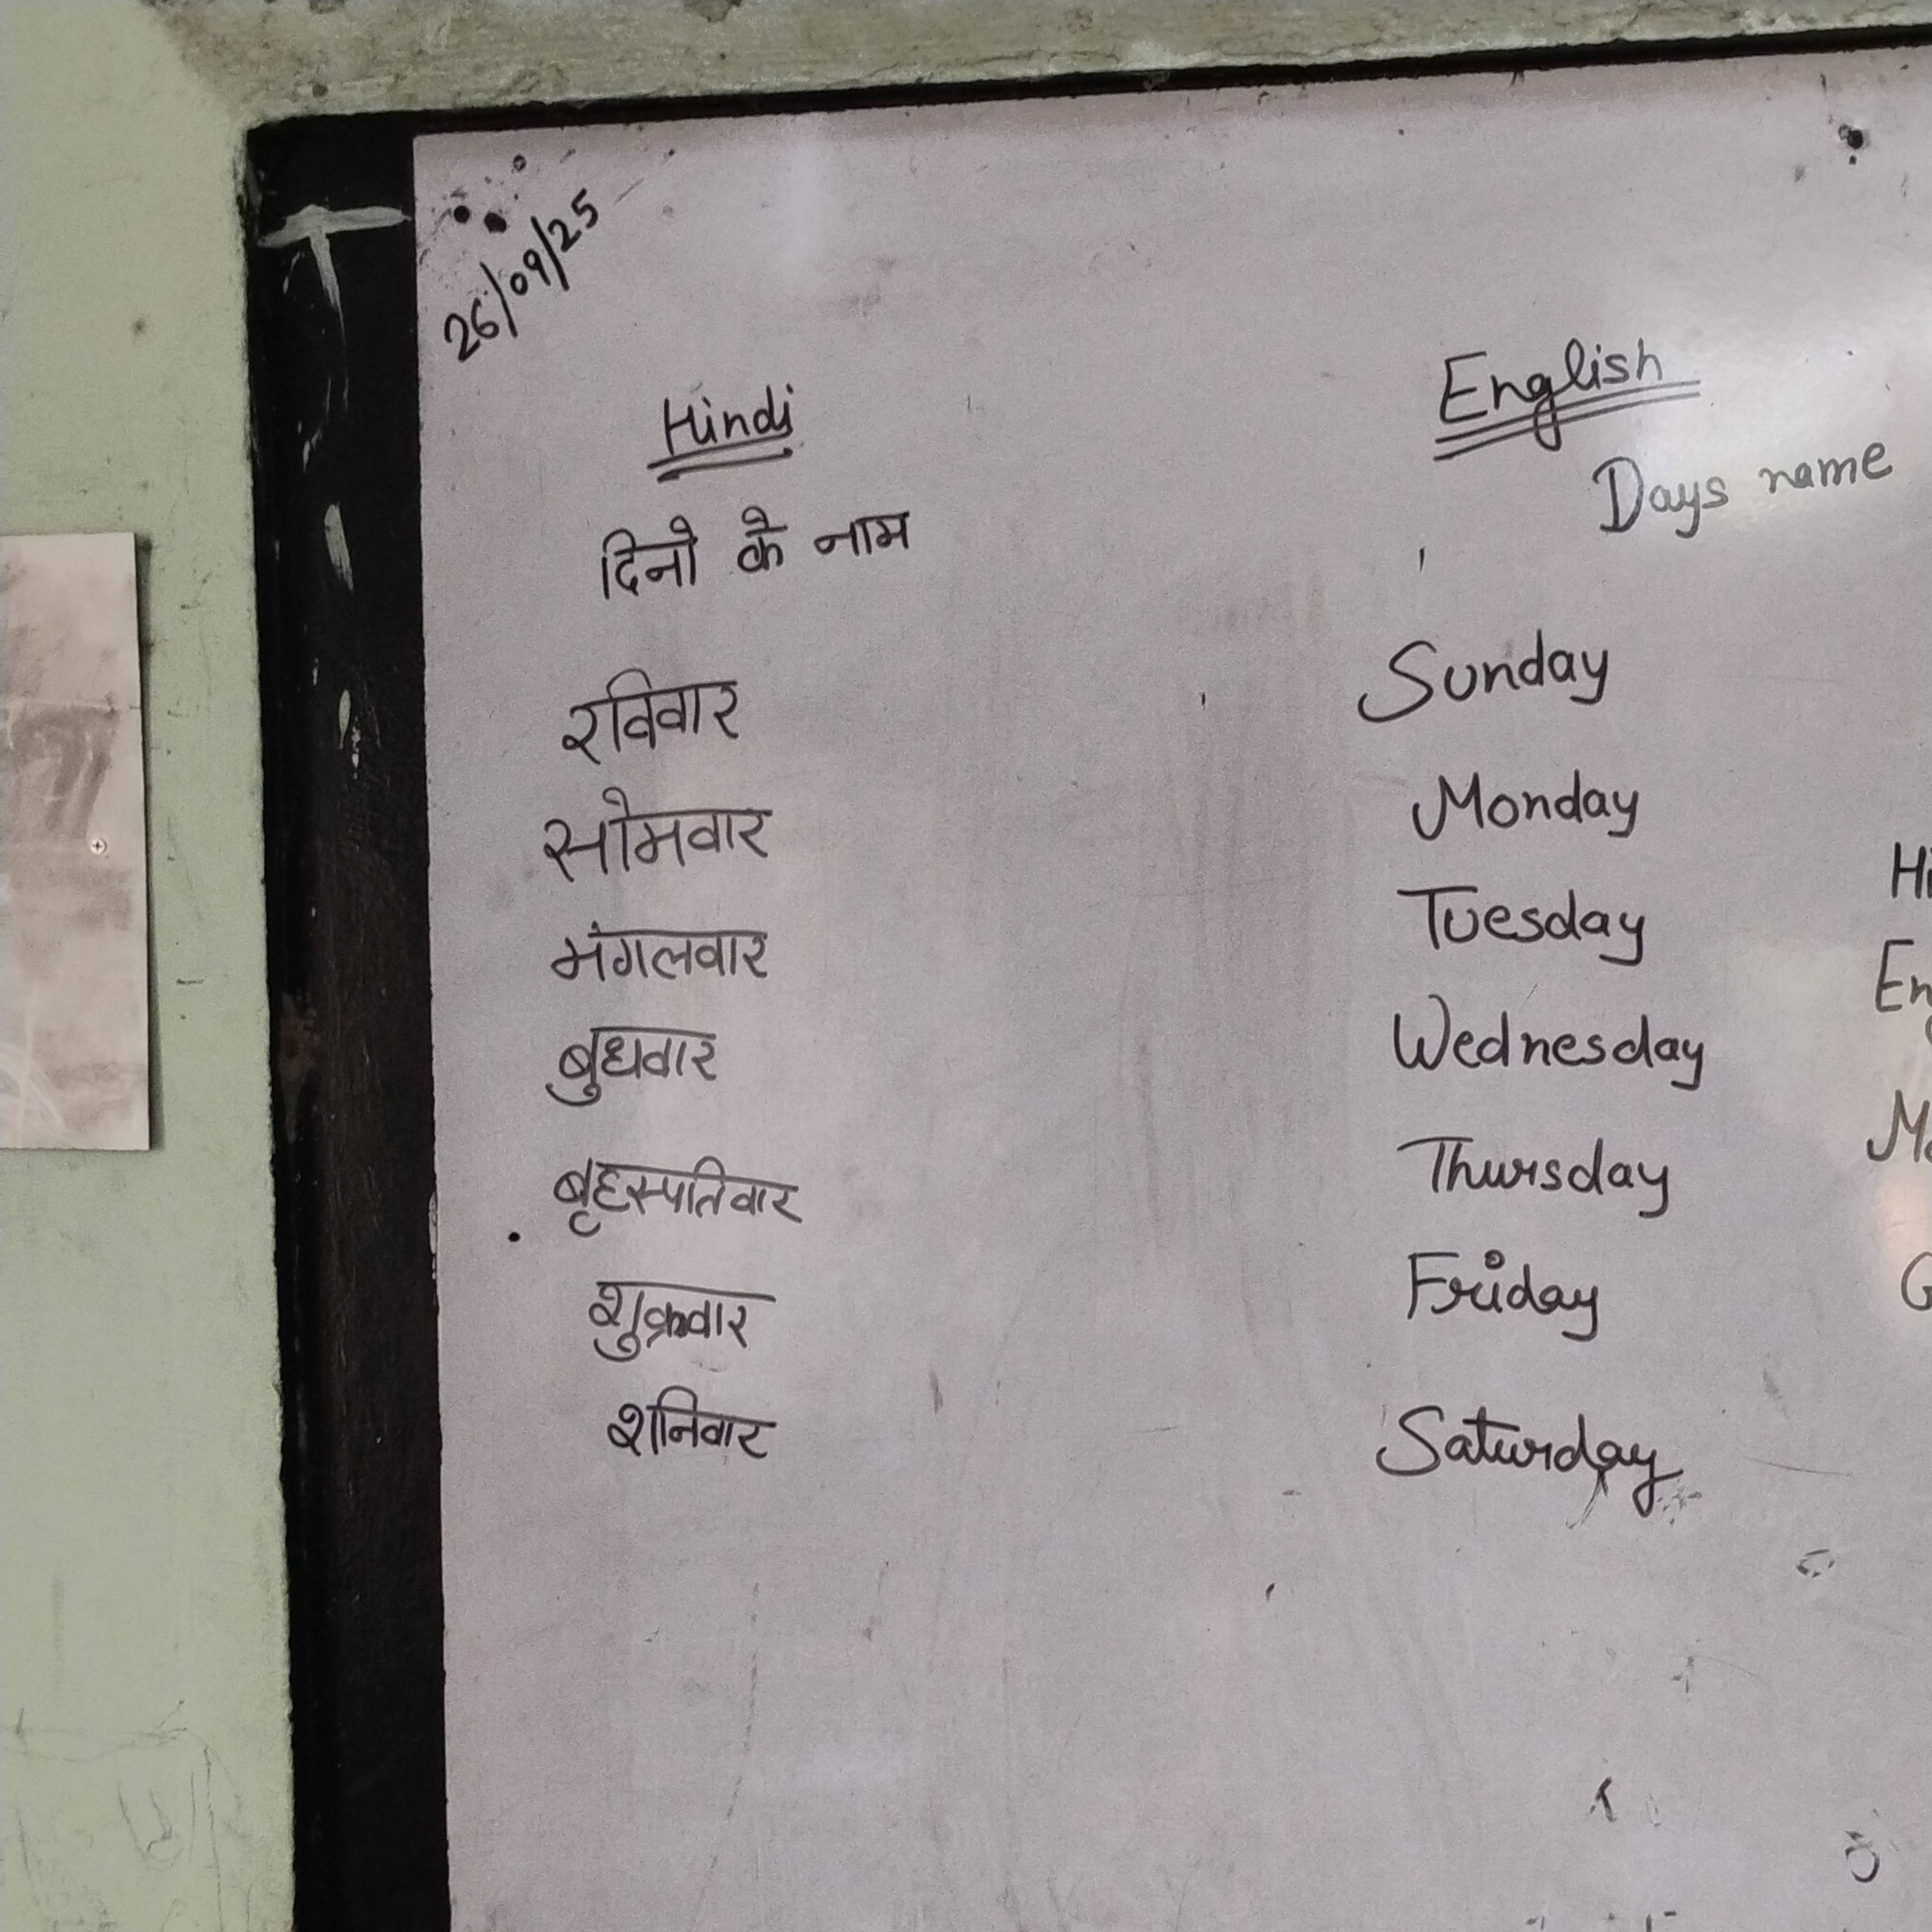 26/09/25
Hindi
दिनो के नाम
रविवार
सोमवार
मंगलवार
बुधवार
बृहस्पतिवार
शुक्रवार
शनिवार
English
Days name
Sunday
Monday
Tuesday
Wednesday
Thursday
Friday
Saturday